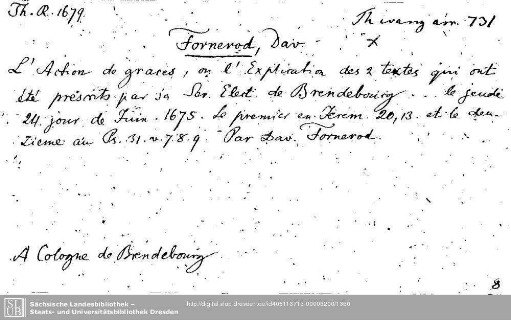 Th. R. 1679.
Th evang asc. 731
Fornerod, Dav.
x
L'Action de graces, ou l'Explication des 2 textes qui ont
été préscrits par sa Ser. Elect. de Brendebourg . . le jeudi
24. jour de Juin. 1675. Le premier en Jerem. 20,13. et le deu-
zieme au Ps. 31. v. 7. 8. 9. Par Dav. Fornerod.
A Cologne de Brendebourg
8
Sächsische Landesbibliothek –
Staats- und Universitätsbibliothek Dresden